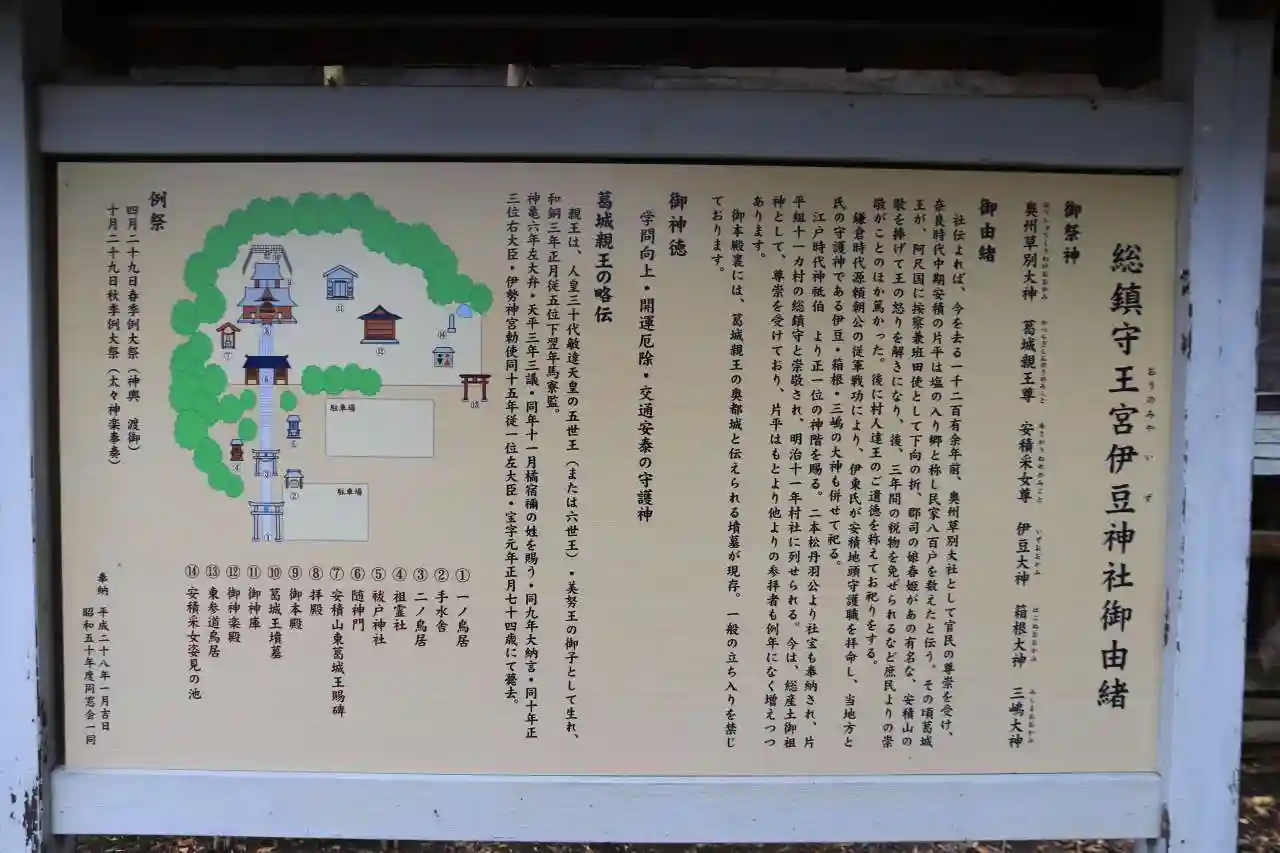 総鎮守王宮伊豆神社御由緒
おうのみや い ず
御祭神
奥州草別大神 葛城親王尊 安積采女尊 伊豆大神 箱根大神 三嶋大神
御由緒
社伝よれば、今を去る一千二百有余年前、奥州草別大社として官民の尊崇を受け、
奈良時代中期安積の片平は塩の入り郷と称し民家八百戸を数えたと伝う。その頃葛城
王が、阿尺国に按察兼班田使として下向の折、郡司の娘春姫があの有名な、安積山の
歌を捧げて王の怒りを解きになり、後、三年間の税物を免ぜられるなど庶民よりの崇
敬がことのほか篤かった。後に村人達王のご遺徳を称えてお祀りをする。
鎌倉時代源頼朝公の従軍戦功により、伊東氏が安積地頭守護職を拝命し、当地方と
氏の守護神である伊豆・箱根・三嶋の大神も併せて祀る。
江戸時代神祇伯 より正一位の神階を賜る。二本松丹羽公より社宝も奉納され、片
平組十一カ村の総鎮守と崇敬され、明治十一年村社に列せられる。今は、総産土御祖
神として、尊崇を受けており、片平はもとより他よりの参拝者も例年になく増えつつ
あります。
御本殿裏には、葛城親王の奥都城と伝えられる墳墓が現存。一般の立ち入りを禁じ
ております。
御神徳
学問向上・開運厄除・交通安泰の守護神
葛城親王の略伝
親王は、人皇三十代敏達天皇の五世王（または六世王）・美努王の御子として生れ、
和銅三年正月従五位下翌年馬寮監。
神亀六年左大弁・天平三年三議・同年十一月橘宿禰の姓を賜う・同九年大納言・同十年正
三位右大臣・伊勢神宮勅使同十五年従一位左大臣・宝字元年正月七十四歳にて薨去。
駐車場
駐車場
①一ノ鳥居
②手水舎
③二ノ鳥居
④祖霊社
⑤祓戸神社
⑥随神門
⑦安積山東葛城王賜碑
⑧拝殿
⑨御本殿
⑩葛城王墳墓
⑪御神庫
⑫御神楽殿
⑬東参道鳥居
⑭安積采女姿見の池
例祭
四月二十九日春季例大祭（神輿 渡御）
十月二十九日秋季例大祭（太々神楽奉奏）
奉納 平成二十八年一月吉日
昭和五十年度同窓会一同